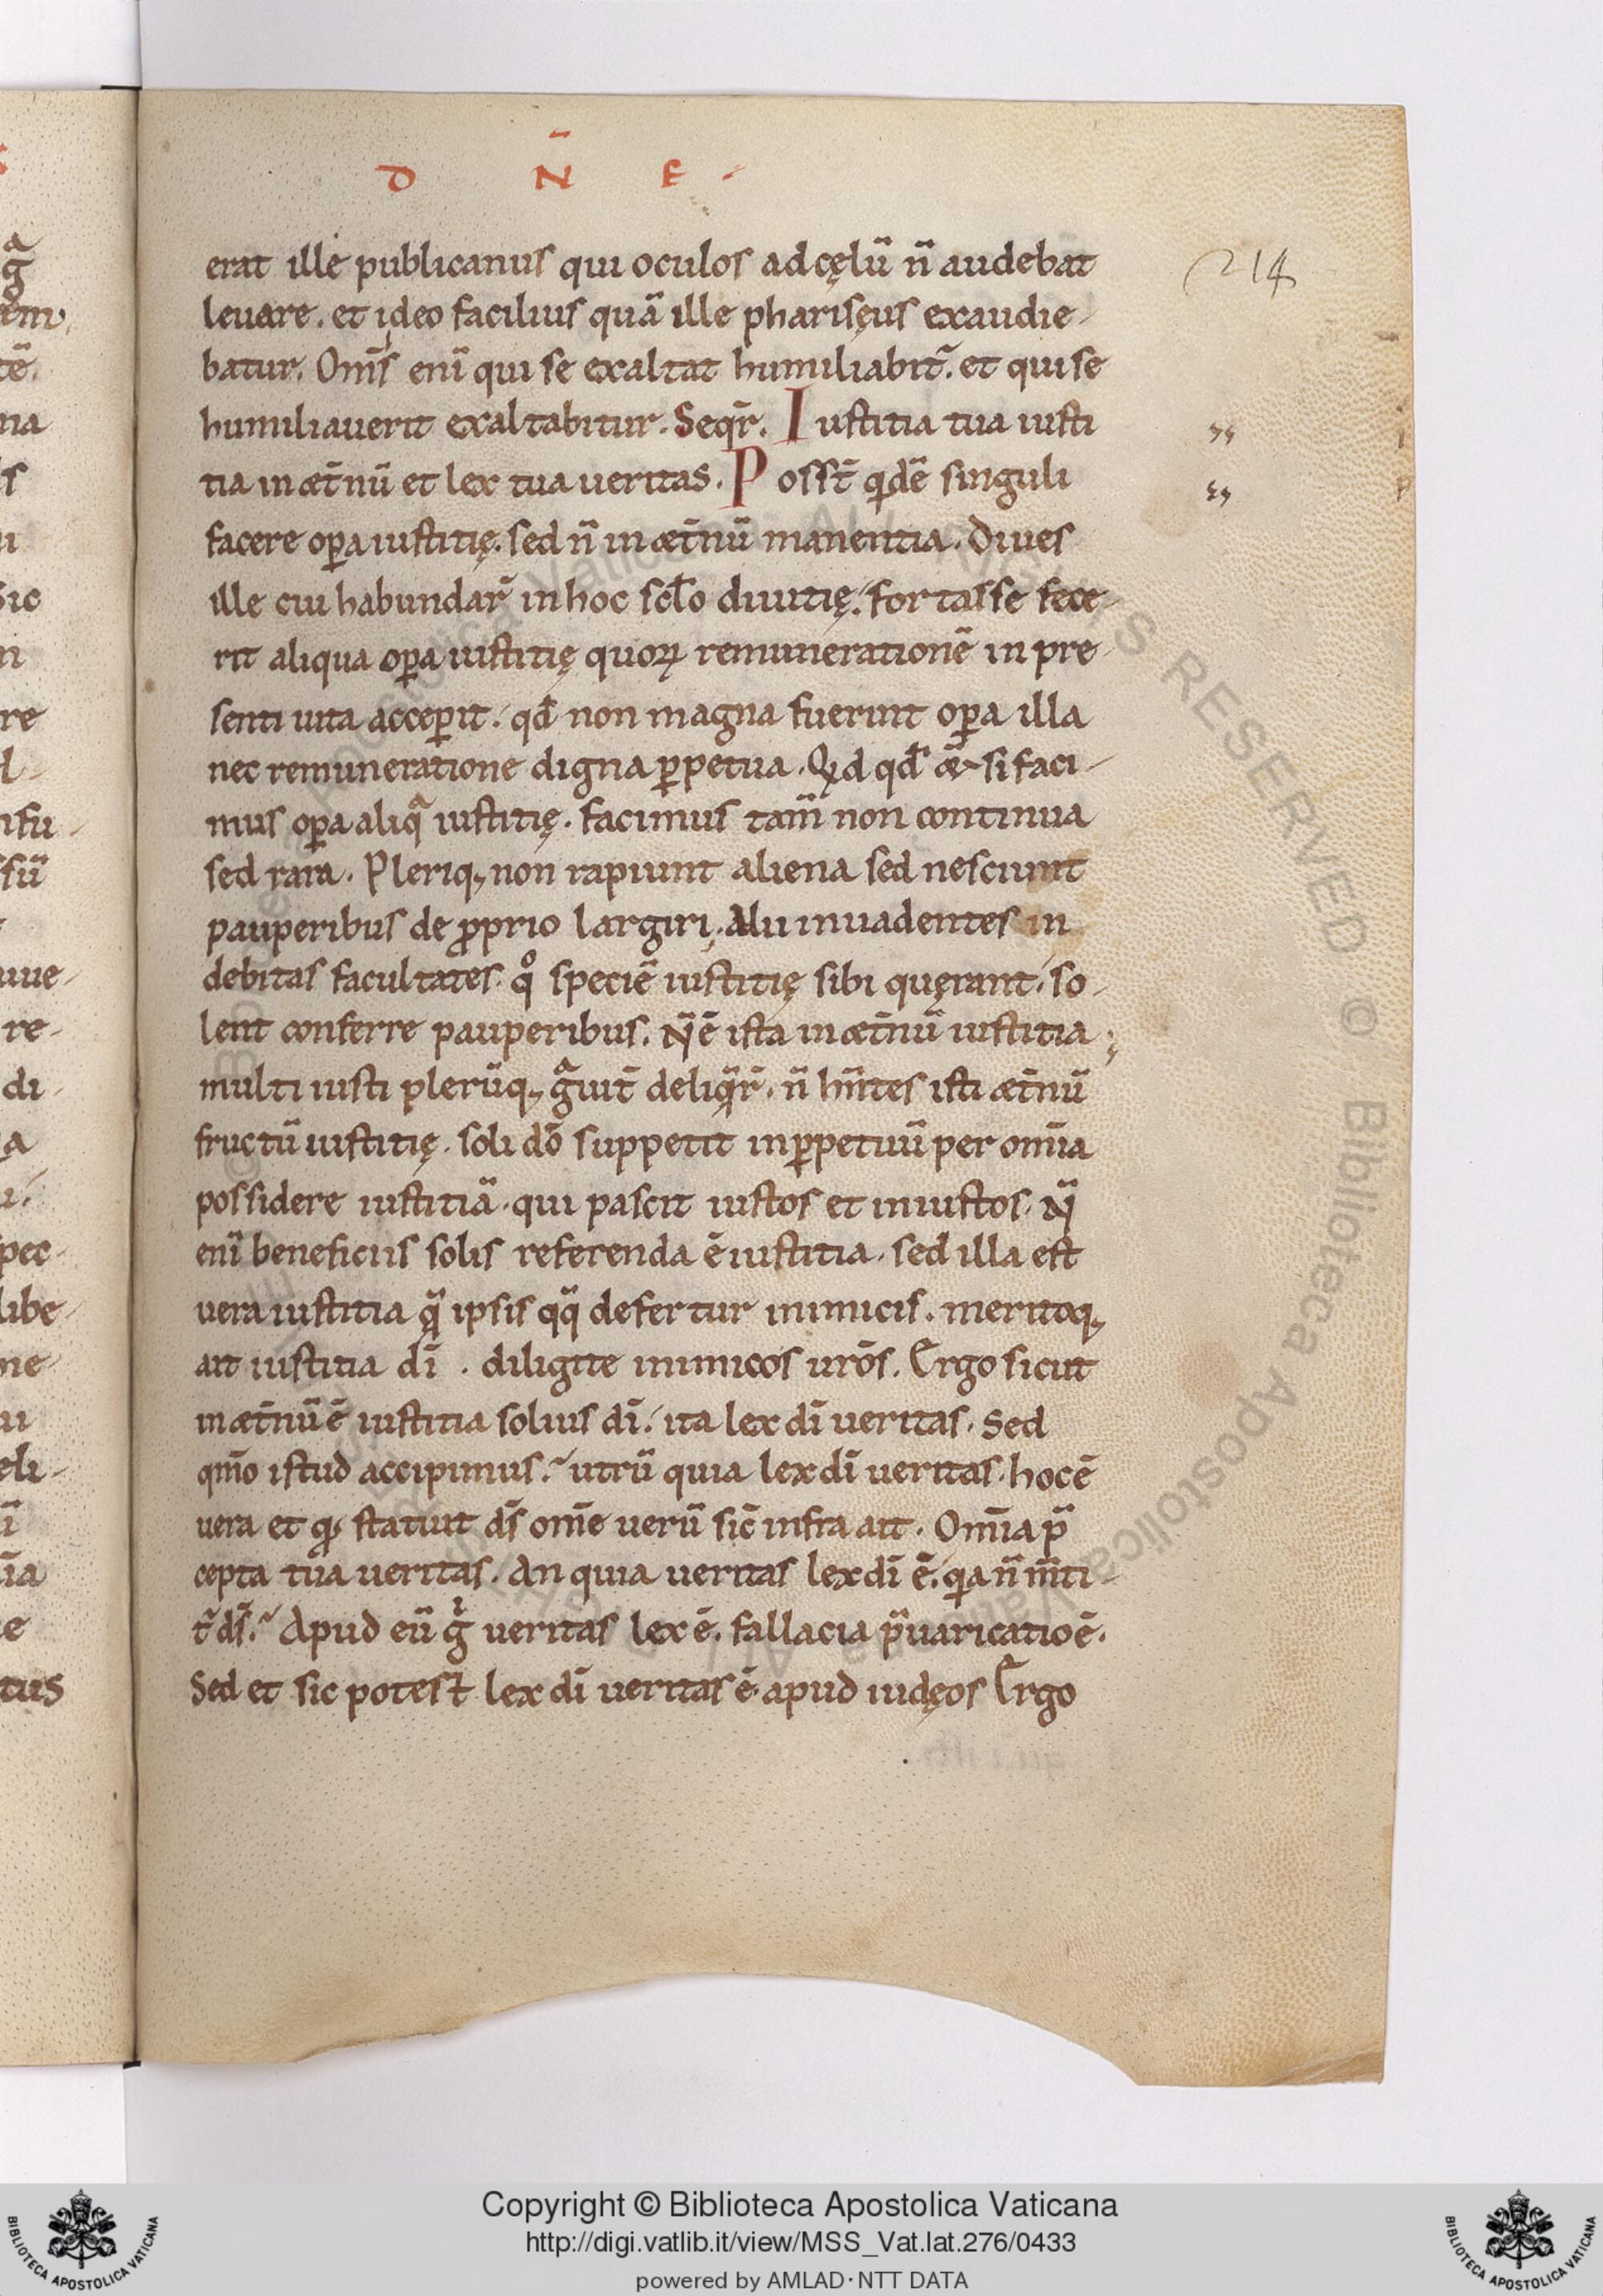 D N̄ E
erat ille publicanus qui oculos ad cęlū n̄ audebat
leuare. et ideo facilius quā ille pharisęus exaudie-
batur. Om̄s enī qui se exaltat humiliabit̄. et qui se
humiliauerit exaltabitur. Seqr̄. Iustitia tua iusti
tia in æt̄nū et lex tua ueritas. Posst̄ qdē singuli
facere oꝑa iustitię. sed n̄ in æt̄nū manentia. Diues
ille cui habundar̄ in hoc scl̄o diuitię. fortasse fece-
rit aliqua oꝑa iustitię quoꝝ remunerationē in pre-
senti uita acceꝑit. qd̄ non magna fuerint oꝑa illa
nec remuneratione digna ꝑpetua. Qd qd̄ & si faci-
mus oꝑa aliqͣ iustitię. facimus tam̄ non continua
sed rara. Pleriq; non rapiunt aliena sed nesciunt
pauperibus de ꝓprio largiri. Alii inuadentes in
debitas facultates. qͦ speciē iustitię sibi quęrant. so-
lent conferre pauperibus. N̄ ē ista in æt̄nū iustitia;
multi iusti plerūq; gͣuit̄ deliqr̄. n̄ hn̄tes isti æt̄nū
fructū iustitię. soli dō suppetit in ꝑpetuū per om̄ia
possidere iustitiā. qui pascit iustos et iniustos. N̄
enī beneficiis solis referenda ē iustitia. sed illa est
uera iustitia qͣ ipsis qqͣ defertur inimicis. meritoq;
ait iustitia dī. diligite inimicos urōs. Ergo sicut
in æt̄nū ē iustitia solius dī. ita lex dī ueritas. Sed
qm̄o istud accipimus. utrū quia lex dī ueritas. hoc ē
uera et q statuit ds̄ om̄e uerū sic̄ infra ait. Om̄ia p̄
cepta tua ueritas. An quia ueritas lex dī ē. qa n̄ m̄ti-
t̄ ds̄. Apud eū gͥ ueritas lex ē. fallacia p̄uaricatio ē.
Sed et sic potest lex dī ueritas ē. apud iudęos Ergo
214
Copyright © Biblioteca Apostolica Vaticana
http://digi.vatlib.it/view/MSS_Vat.lat.276/0433
powered by AMLAD·NTT DATA